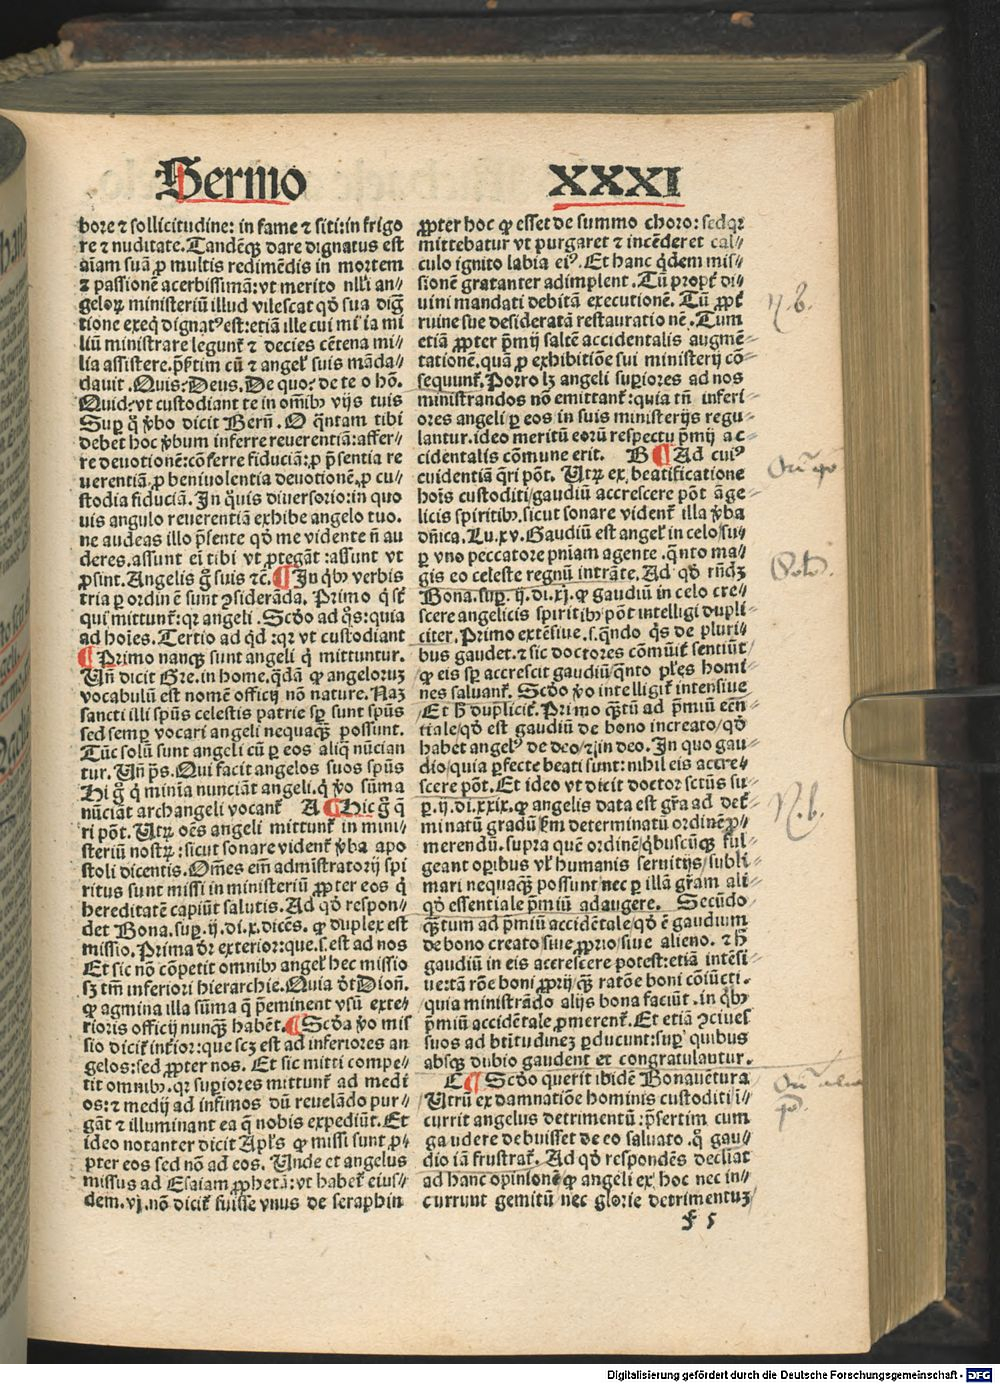 Sermo XXXI
bore ⁊ sollicitudine: in fame ⁊ siti: in frigo
re ⁊ nuditate. Tandēq₃ dare dignatus est
aīam suā ꝓ multis redimēdis in mortem
⁊ passionē acerbissimā: vt merito nll̓i an⸗
geloꝝ ministeriū illud vilescat qd̓ sua dig
tione exeq̄ dignatꝰ est: etiā ille cui mi̓ia mi
liū ministrare legunt̓ ⁊ decies cētena mi⸗
lia assistere. p̄st̓im cū ⁊ angel̓ suis māda⸗
dauit. Quis: Deus. De quo: de te o hō.
Quid: vt custodiant te in om̄ib₉ vijs tuis
Suꝑ q̄ ꝟbo dicit Bern̄. O q̄ntam tibi
debet hoc ꝟbum inferre reuerentiā: affer⸗
re deuotionē: cōferre fiduciā: ꝓ p̄sentia re
uerentiā. ꝓ beniuolentia deuotionē. ꝓ cu⸗
stodia fiduciā. In q̄uis diuersorio: in quo
uis angulo reuerentiā exhibe angelo tuo.
ne audeas illo p̄sente qd̓ me vidente nō au
deres. assunt ei̓ tibi vt ꝓtegāt: assunt vt
ꝓsint. Angelis g̊ suis ⁊c̄. ¶ In qb₉ verbis
tria ꝑ ordinē sunt ꝯsiderāda. Primo q̇ st̓
qui mittunt̓: qꝛ angeli. Scd̓o ad q̊s: quia
ad hoīes. Tertio ad qd̓: qꝛ vt custodiant
¶ Primo nanq₃ sunt angeli q̇ mittuntur.
Vn̄ dicit Gre. in home. q̄dā ꝙ angeloruꝫ
vocabulū est nomē officij nō nature. Naꝫ
sancti illi spūs celestis patrie sꝑ sunt spūs
sed semꝑ vocari angeli nequaq̄₃ possunt.
Tūc solū sunt angeli cū ꝑ eos aliq̄ nūcian
tur. Vn̄ ps̄. Qui facit angelos suos spūs
Hi g̊ q̇ minīa nunciāt angeli. q̇ ꝟo sūma
nūciāt archangeli vocant̓ A ¶ Hic g̊ q̄
ri pōt. Vtꝝ oēs angeli mittunt̓ in mini⸗
steriū nostꝝ: sicut sonare vident̓ ꝟba apo
stoli dicentis. Om̄es em̄ adm̄istratorij spi
ritus sunt missi in ministeriū ꝓpter eos q̇
hereditatē capiūt salutis. Ad qd̓ respon⸗
det Bona. suꝑ. ij. di. x. dicēs. ꝙ duplex est
missio. Prima d̓r exterior: que. s. est ad nos
Et sic nō cōpetit omnib₉ angel̓ hec missio
sꝫ tm̄ inferiori hierarchie. Quia d̓t Dion̄.
ꝙ agmina illa sūma q̄ p̄eminent vsū exte⸗
rioris officij nunq₃ habēt. ¶ Scd̓a ꝟo mis
sio dicit̓ int̓ior: que scꝫ est ad inferiores an
gelos: sed ꝓpter nos. Et sic mitti compe⸗
tit omnib₉. qꝛ suꝑiores mittunt̓ ad medi
os: ⁊ medij ad infimos dū reuelādo pur⸗
gāt ⁊ illuminant ea q̄ nobis expediūt. Et
ideo notanter dicit Apl̓s ꝙ missi sunt ꝓ⸗
pter eos sed nō ad eos. Unde et angelus
missus ad Esaiam ꝓphetā: vt habet̓ eius⸗
dem. vj. nō dicit̓ fuisse vnus de seraphin
ꝓpter hoc ꝙ esset de summo choro: sed qꝛ
mittebatur vt purgaret ⁊ incēderet cal⸗
culo ignito labia eiꝰ. Et hanc q̇dem mis⸗
sionē gratanter adimplent. Tū propt̓ di⸗
uini mandati debitā executionē. Tū ꝓpt̓
ruine sue desideratā restauratio nē. Tum
etiā ꝓpter p̄mij saltē accidentalis augmē⸗
tationē. quā ꝑ exhibitiōe sui ministerij cō⸗
sequunt̓. Porro lꝫ angeli suꝑiores ad nos
ministrandos nō emittant̓: quia tn̄ inferi⸗
ores angeli ꝑ eos in suis ministerijs regu⸗
lantur. ideo meritū eorū respectu p̄mij ac⸗
cidentalis cōmune erit. B ¶ Ad cuiꝰ
euidentiā q̄ri pōt. Vtꝝ ex beatificatione
hoīs custoditi / gaudiū accrescere pōt āge⸗
licis spiritib₉. sicut sonare vident̓ illa ꝟba
dn̄ica. Lu. xv. Gaudiū est angel̓ in celo / su⸗
ꝑ vno peccatore pn̄iam agente. q̄nto ma⸗
gis eo celeste regnū intrāte. Ad qd̓ rn̄dꝫ
Bona. suꝑ. ij. di. xj. ꝙ gaudiū in celo cre⸗
scere angelicis spiritib₉ pōt intelligi dupli⸗
citer. Primo extēsiue. s. qn̄do q̊s de pluri⸗
bus gaudet. ⁊ sic doctores cōmūit̓ sentiūt /
ꝙ eis sꝑ accrescit gaudiū / q̄nto pl̓es homi⸗
nes saluant̓. Scd̓o ꝟo intelligit̓ intensiue
Et h̄ duplicit̓. Primo q̄₃tū ad p̄miū eēn⸗
tiale / qd̓ est gaudiū de bono increato / qd̓
habet angelꝰ de deo / ⁊ in deo. In quo gau⸗
dio / quia ꝑfecte beati sunt: nihil eis accre⸗
scere pōt. Et ideo vt dicit doctor sctūs su⸗
ꝑ. ij. di. xxix. ꝙ angelis data est gr̄a ad det̓⸗
minatū gradū / s̄m determinatu ordinē ꝓ⸗
merendū. supra quē ordinē / q̇buscūq₃ ful⸗
geant oꝑibus vl̓ humanis seruitijs / subli⸗
mari nequaq̄₃ possunt / nec ꝑ illā gr̄am ali⸗
qd̓ essentiale p̄miū adaugere. Secūdo
q̄₃tum ad p̄miū accidētale / qd̓ ē gaudium
de bono creato siue ꝓprio / siue alieno. ⁊ h̄
gaudiū in eis accrescere potest: etiā intēsi⸗
ue: tā rōe boni ꝓprij / q̄₃ ratōe boni cōiūcti.
quia ministrādo alijs bona faciūt. in qb₉
p̄miū accidētale ꝓmerent̓. Et etiā ꝯciues
suos ad btitudineꝫ ꝑducunt: suꝑ quibus
absq₃ dubio gaudent et congratulantur.
C ¶ Scd̓o querit ibidē Bonauētura
Utrū ex damnatiōe hominis custoditi / i⸗
currit angelus detrimentū: p̄sertim cum
gaudere debuisset de eo saluato. q̊ gau⸗
dio iā frustrat̓. Ad qd̓ respondēs decliāt
ad hanc opinionē ꝙ angeli ex hoc nec in⸗
currunt gemitū / nec glorie detrimentuꝫ
f 5
N. b.
Soło.
N. b.
Digitalisierung gefördert durch die Deutsche Forschungsgemeinschaft - DFG